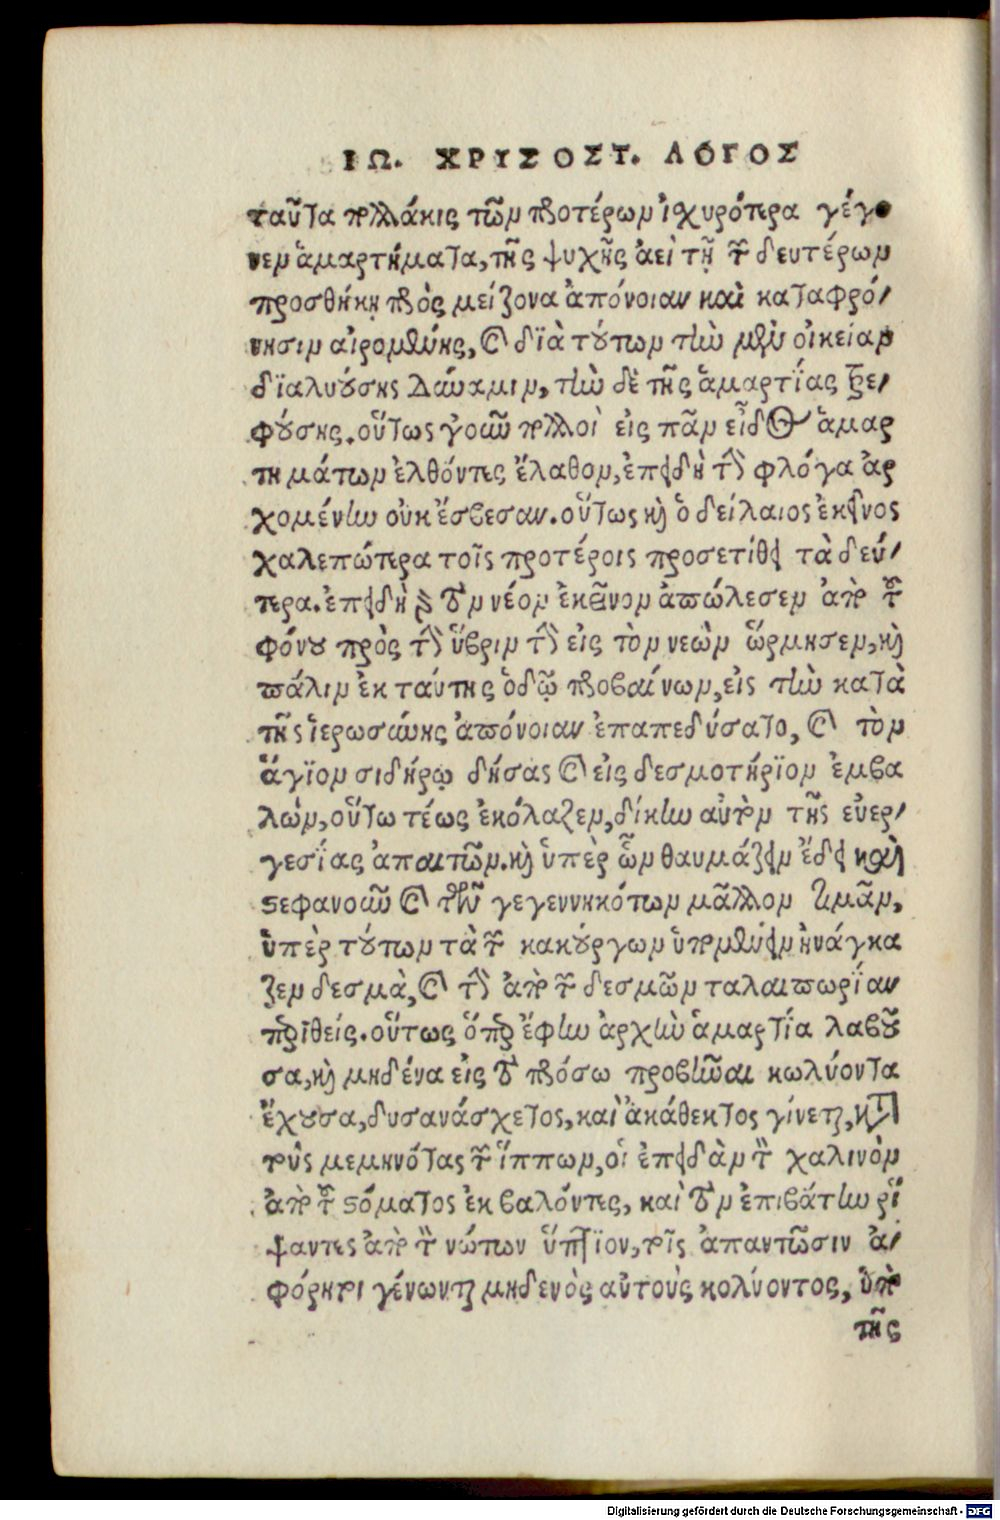 ΙΩ. ΧΡΥΣΟΣΤ. ΛΟΓΟΣ
ταῦτα πολλάκις τῶν προτέρων ἰσχυρότερα γέγο
νεν ἁμαρτήματα, τῆς ψυχῆς ἀεὶ τῇ τῶν δευτέρων
προσθήκῃ πρὸς μείζονα ἀπόνοιαν καὶ καταφρό/
νησιν αἰρομένης, καὶ διὰ τούτων τὴν μὲν οἰκείαν
διαλυούσης δύναμιν, τὴν δὲ τῆς ἁμαρτίας ἐκτρε/
φούσης. οὕτως γοῦν πολλοὶ εἰς πᾶν εἶδος ἁμαρ
τημάτων ἐλθόντες ἔλαθον, ἐπειδὴ τὴν φλόγα ἀρ
χομένην οὐκ ἔσβεσαν. οὕτως καὶ ὁ δείλαιος ἐκεῖνος
χαλεπώτερα τοῖς προτέροις προσετίθει τὰ δεύ/
τερα. ἐπειδὴ γὰρ τὸν νέον ἐκεῖνον ἀπώλεσεν ἀπὸ τοῦ
φόνου πρὸς τὴν ὕβριν τὴν εἰς τὸν νεὼν ὥρμησεν, καὶ
πάλιν ἐκ ταύτης ὁδῷ προβαίνων, εἰς τὴν κατὰ
τῆς ἱερωσύνης ἀπόνοιαν ἐπαπεδύσατο, καὶ τὸν
ἅγιον σιδήρῳ δήσας καὶ εἰς δεσμοτήριον ἐμβα
λών, οὕτω τέως ἐκόλαζεν, δίκην αὐτὸν τῆς εὐερ/
γεσίας ἀπαιτῶν. καὶ ὑπὲρ ὧν θαυμάζειν ἔδει καὶ
στεφανοῦν καὶ τῶν γεγεννηκότων μᾶλλον τιμᾶν,
ὑπὲρ τούτων τὰ τῶν κακούργων ὑπομένειν ἠνάγκα
ζεν δεσμὰ, καὶ τὴν ἀπὸ τῶν δεσμῶν ταλαιπωρίαν
περιθείς. οὕτως ὅπερ ἔφην ἀρχὴν ἁμαρτία λαβοῦ
σα, καὶ μηδένα εἰς τὸ πρόσω προβῆναι κωλύοντα
ἔχουσα, δυσανάσχετος, καὶ ἀκάθεκτος γίνεται, κατὰ
τοὺς μεμηνότας τῶν ἵππων, οἳ ἐπειδὰν τὸν χαλινὸν
ἀπὸ τοῦ στόματος ἐκβαλόντες, καὶ τὸν ἐπιβάτην ῥί
ψαντες ἀπὸ τῶν νώτων ὕπτιον, τοῖς ἀπαντῶσιν ἀ/
φόρητοι γένωνται μηδενὸς αὐτοὺς κολύοντος, ὑπὸ
τῆς
Digitalisierung gefördert durch die Deutsche Forschungsgemeinschaft - DFG